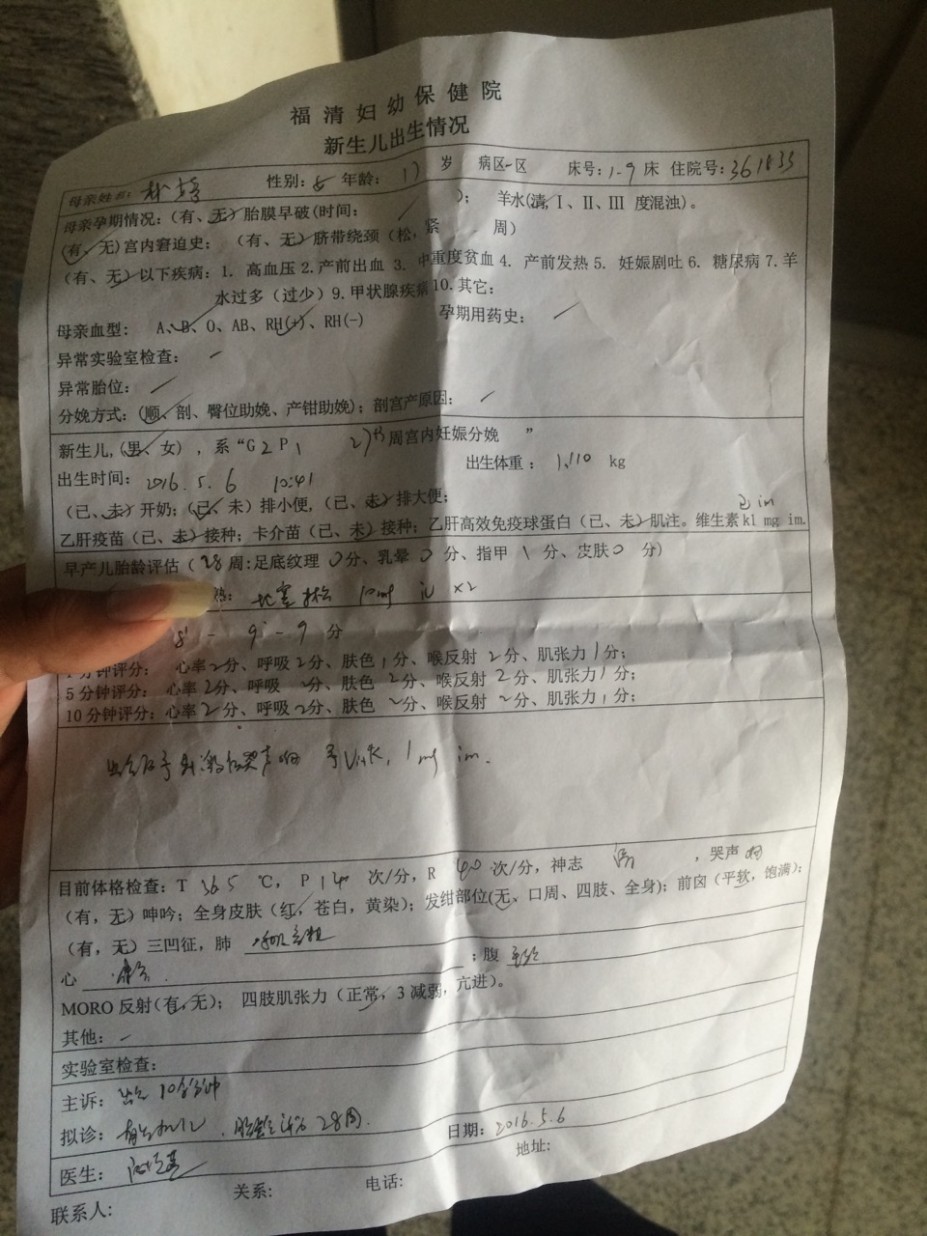 福清妇幼保健院
新生儿出生情况
母亲姓名: 性别: 年龄: 岁 病区 一区 床号: 1-9 床 住院号: 361833
母亲孕期情况: (有、无) 胎膜早破(时间: / ); 羊水(清, I、II、III 度混浊)。
(有、无)宫内窘迫史; (有、无) 脐带绕颈 (松, 紧 周)
(有、无) 以下疾病: 1. 高血压 2. 产前出血 3. 中重度贫血 4. 产前发热 5. 妊娠剧吐 6. 糖尿病 7. 羊
水过多 (过少) 9. 甲状腺疾病 10. 其它:
母亲血型: A、B、O、AB、RH(+)、RH(-) 孕期用药史: /
异常实验室检查: /
异常胎位: /
分娩方式: (顺、剖、臀位助娩、产钳助娩); 剖宫产原因: /
新生儿, (男、女) , 系“G 2 P 1 27 周宫内妊娠分娩 ”
出生时间: 2016.5.6 10:41 出生体重: 1.110 kg
(已、未) 开奶; (已、未) 排小便, (已、未) 排大便;
乙肝疫苗 (已、未) 接种; 卡介苗 (已、未) 接种; 乙肝高效免疫球蛋白 (已、未) 肌注。维生素 k1 mg im.
早产儿胎龄评估 ( 28 周: 足底纹理 0 分、乳晕 0 分、指甲 1 分、皮肤 0 分)
地塞米松 10mg iv ×2
8 - 9 - 9 分
1分钟评分: 心率 2 分、呼吸 2 分、肤色 1 分、喉反射 2 分、肌张力 1 分;
5 分钟评分: 心率 2 分、呼吸 2 分、肤色 2 分、喉反射 2 分、肌张力 1 分;
10 分钟评分: 心率 2 分、呼吸 2 分、肤色 2 分、喉反射 2 分、肌张力 1 分;
予 VitK1 1mg im.
目前体格检查: T 36.5 ℃, P 140 次/分, R 40 次/分, 神志 清 , 哭声 响
(有, 无) 呻吟; 全身皮肤 (红, 苍白, 黄染); 发绀部位(无、口周、四肢、全身); 前囟 (平软, 饱满);
(有, 无) 三凹征, 肺 呼吸音粗
心 ; 腹
MORO 反射(有, 无); 四肢肌张力 (正常, 3 减弱, 亢进)。
其他: /
实验室检查:
主诉: 出生 10分钟
拟诊: 早产儿, 胎龄评估 28周. 日期: 2016.5.6
医生: 地址:
联系人: 关系: 电话: